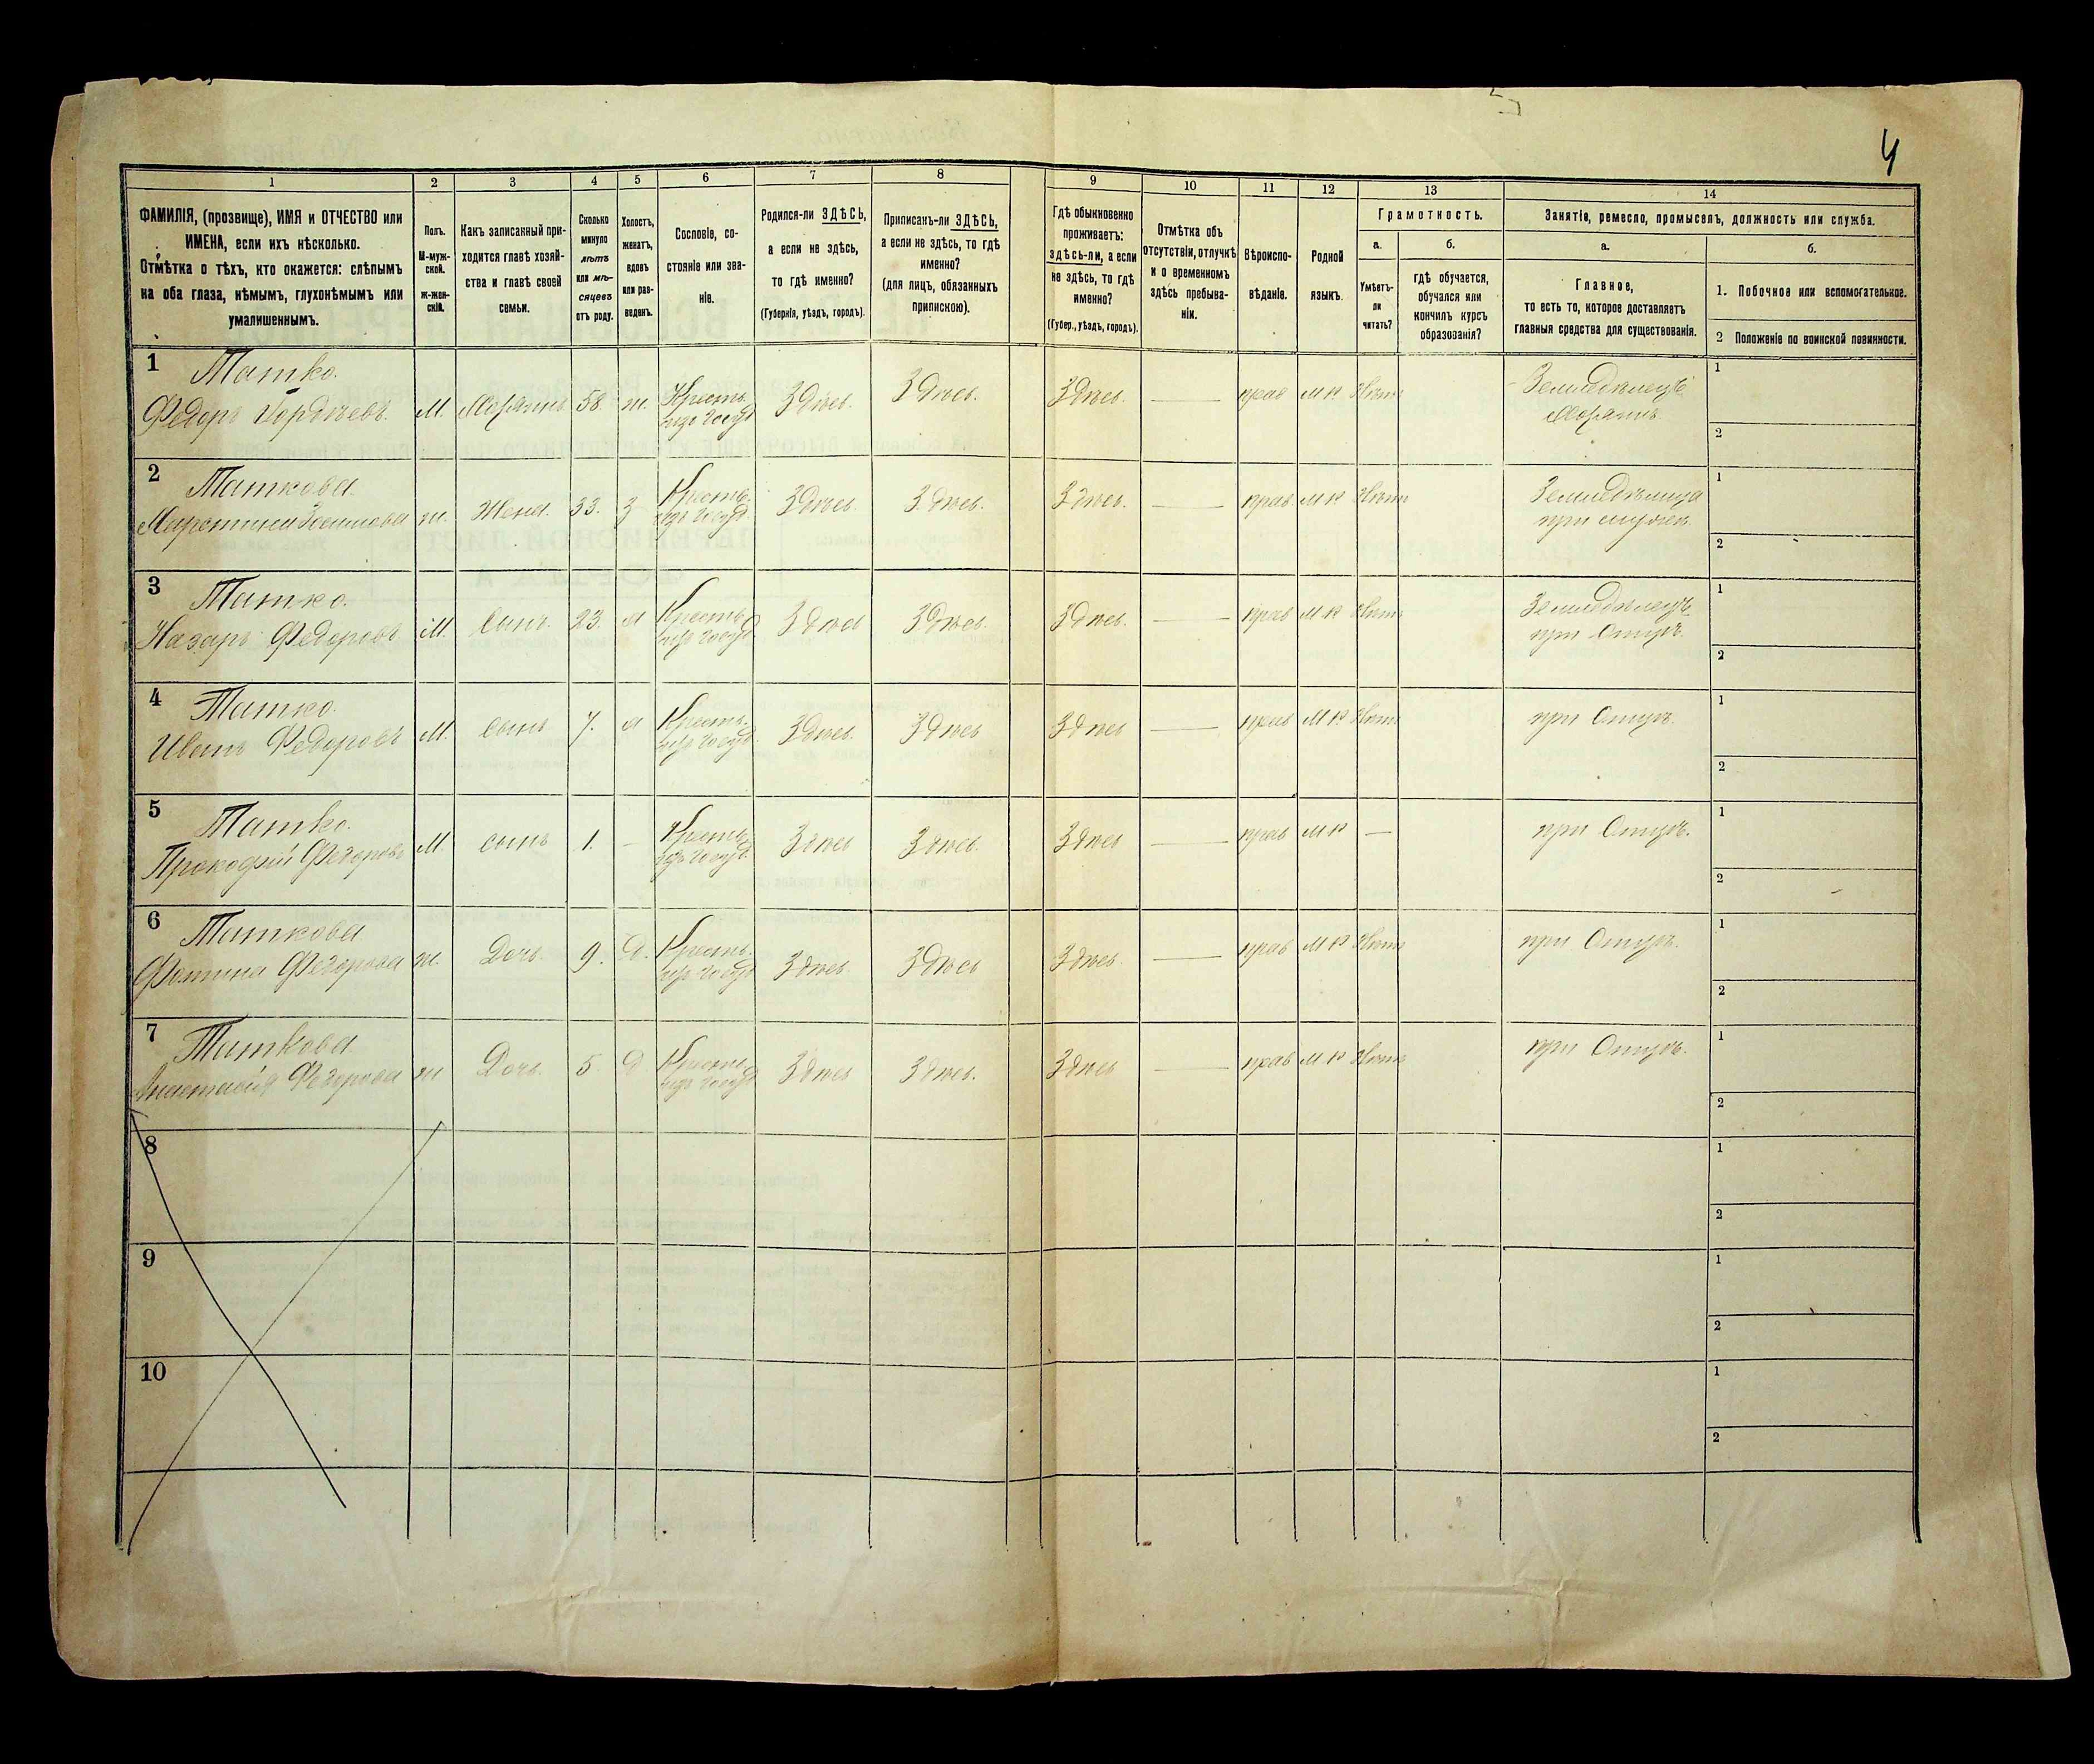 4
1 2 3 4 5 6 7 8 9 10 11 12 13 14
ФАМИЛІЯ, (прозвище), ИМЯ и ОТЧЕСТВО или
ИМЕНА, если ихъ нѣсколько.
Отмѣтка о тѣхъ, кто окажется: слѣпымъ
на оба глаза, нѣмымъ, глухонѣмымъ или
умалишеннымъ.
Полъ.
М-муж-
ской.
ж-жен-
скій.
Какъ записанный при-
ходится главѣ хозяй-
ства и главѣ своей
семьи.
Сколько
минуло
лѣтъ
или мѣ-
сяцевъ
отъ роду.
Холостъ,
женатъ,
вдовъ
или раз-
веденъ.
Сословіе, со-
стояніе или зва-
ніе.
Родился-ли ЗДѢСЬ,
а если не здѣсь,
то гдѣ именно?
(Губернія, уѣздъ, городъ).
Приписанъ-ли ЗДѢСЬ,
а если не здѣсь, то гдѣ
именно?
(для лицъ, обязанныхъ
припискою).
Гдѣ обыкновенно
проживаетъ:
здѣсь-ли, а если
не здѣсь, то гдѣ
именно?
(Губер., уѣздъ, городъ).
Отмѣтка объ
отсутствіи, отлучкѣ
и о временномъ
здѣсь пребыва-
ніи.
Вѣроиспо-
вѣданіе.
Родной
языкъ.
Грамотность.
а.
Умѣетъ-
ли
читать?
б.
гдѣ обучается,
обучался или
кончилъ курсъ
образованія?
Занятіе, ремесло, промыселъ, должность или служба.
а.
Главное,
то есть то, которое доставляетъ
главныя средства для существованія.
б.
1. Побочное или вспомогательное.
2 Положеніе по воинской повинности.
1 Татко.
Федоръ Гордѣевъ. М. Хозяинъ 58. ж. Крестьян. изъ госуд. Здѣсь. Здѣсь. Здѣсь. — прав М Р Нѣтъ Земледѣлецъ Хозяинъ 1
2
2 Таткова.
ж. Жена. 33. З Крестьян. изъ госуд. Здѣсь. Здѣсь. Здѣсь. — прав. М Р. Нѣтъ Земледѣлица при мужѣ 1
2
3 Татко.
Назаръ Федоровъ М. Сынъ. 23. Крестьян. изъ госуд. Здѣсь Здѣсь. Здѣсь. — прав М Р Нѣтъ Земледѣлецъ при Отцѣ. 1
2
4 Татко.
Иванъ Федоровъ М. Сынъ 7. Крестьян. изъ госуд. Здѣсь. Здѣсь Здѣсь — прав М Р Нѣтъ при Отцѣ. 1
2
5 Татко.
Прокофій Федоровъ М сынъ 1. – Крестьян. изъ госуд. Здѣсь Здѣсь. Здѣсь — прав М Р — при Отцѣ. 1
2
6 Таткова
Федорова ж. Дочь. 9. Д. Крестьян. изъ госуд. Здѣсь. Здѣсь Здѣсь. — прав М Р Нѣтъ при Отцѣ. 1
2
7 Таткова
Анастасія Федорова ж Дочь. 5 Д Крестьян. изъ госуд. Здѣсь Здѣсь. Здѣсь — прав М Р Нѣтъ при Отцѣ. 1
2
8 1
2
9 1
2
10 1
2